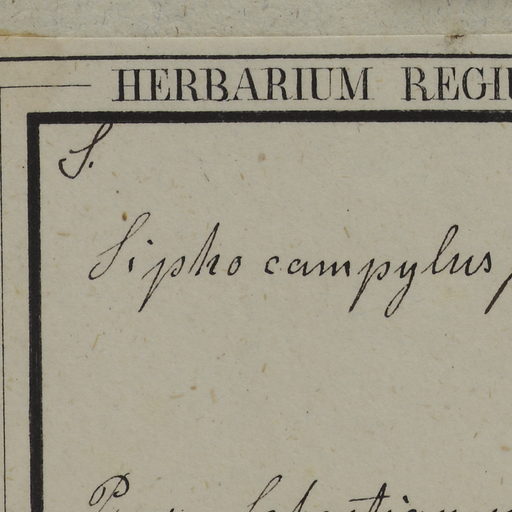 HERBARIUM REGIU
S.
Siphocampylus